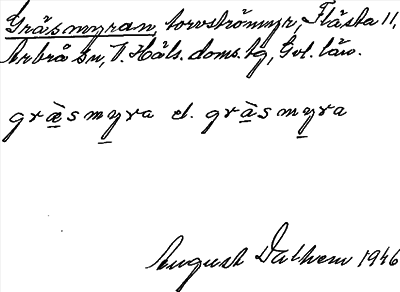 Gräsmyran, torvströmyr, Flästa 11,
Arbrå sn, V. Häls. doms. tg, Gvl. län.
græ̀smyra el. gràsmyra
August Dalhem 1946